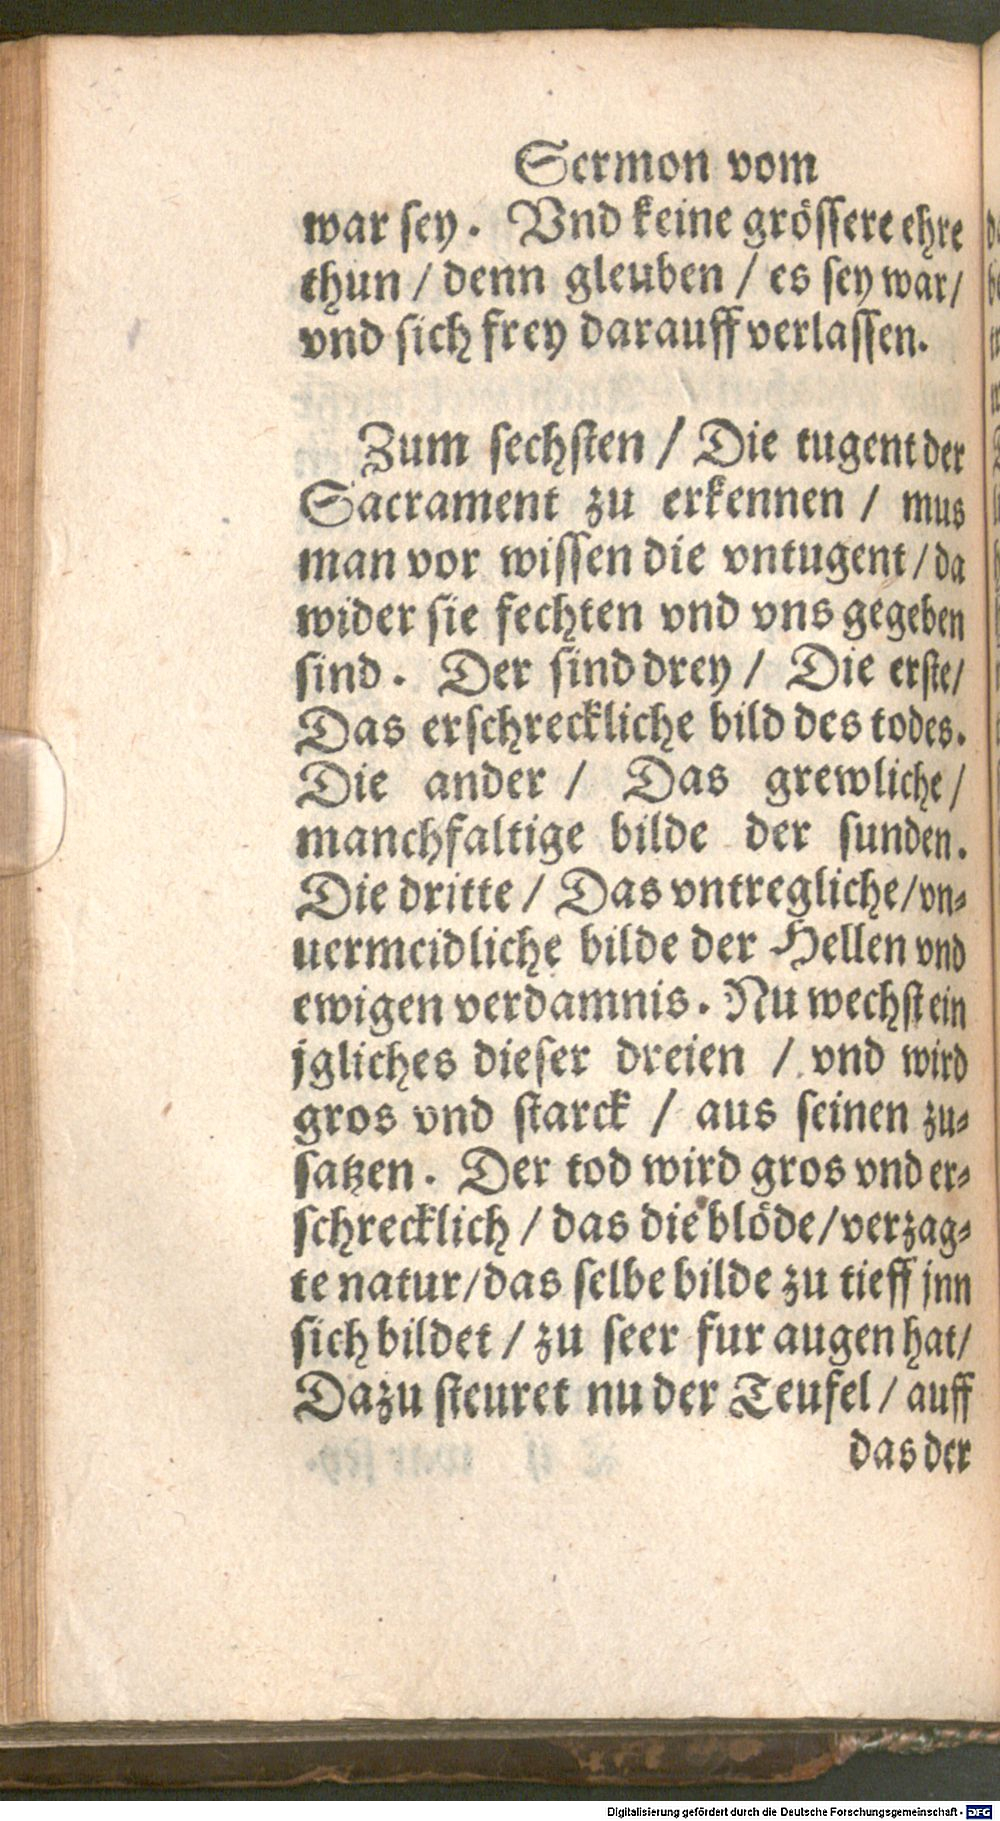 Sermon vom
war sey. Vnd keine grössere ehre
thun / denn gleuben / es sey war/
vnd sich frey darauff verlassen.
Zum sechsten / Die tugent der
Sacrament zu erkennen / mus
man vor wissen die vntugent / da
wider sie fechten vnd vns gegeben
sind. Der sind drey / Die erste/
Das erschreckliche bild des todes.
Die ander / Das grewliche/
manchfaltige bilde der sunden.
Die dritte / Das vntregliche/vn-
uermeidliche bilde der Hellen vnd
ewigen verdamnis. Nu wechst ein
jgliches dieser dreien / vnd wird
gros vnd starck / aus seinen zu-
satzen. Der tod wird gros vnd er-
schrecklich / das die blöde/verzag-
te natur/das selbe bilde zu tieff jnn
sich bildet / zu seer fur augen hat/
Dazu steuret nu der Teufel / auff
das der
Digitalisierung gefördert durch die Deutsche Forschungsgemeinschaft - DFG